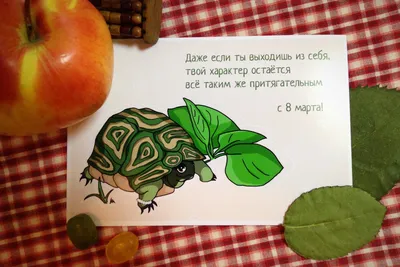 Даже если ты выходишь из себя,
твой характер остаётся
всё таким же притягательным
с 8 марта!